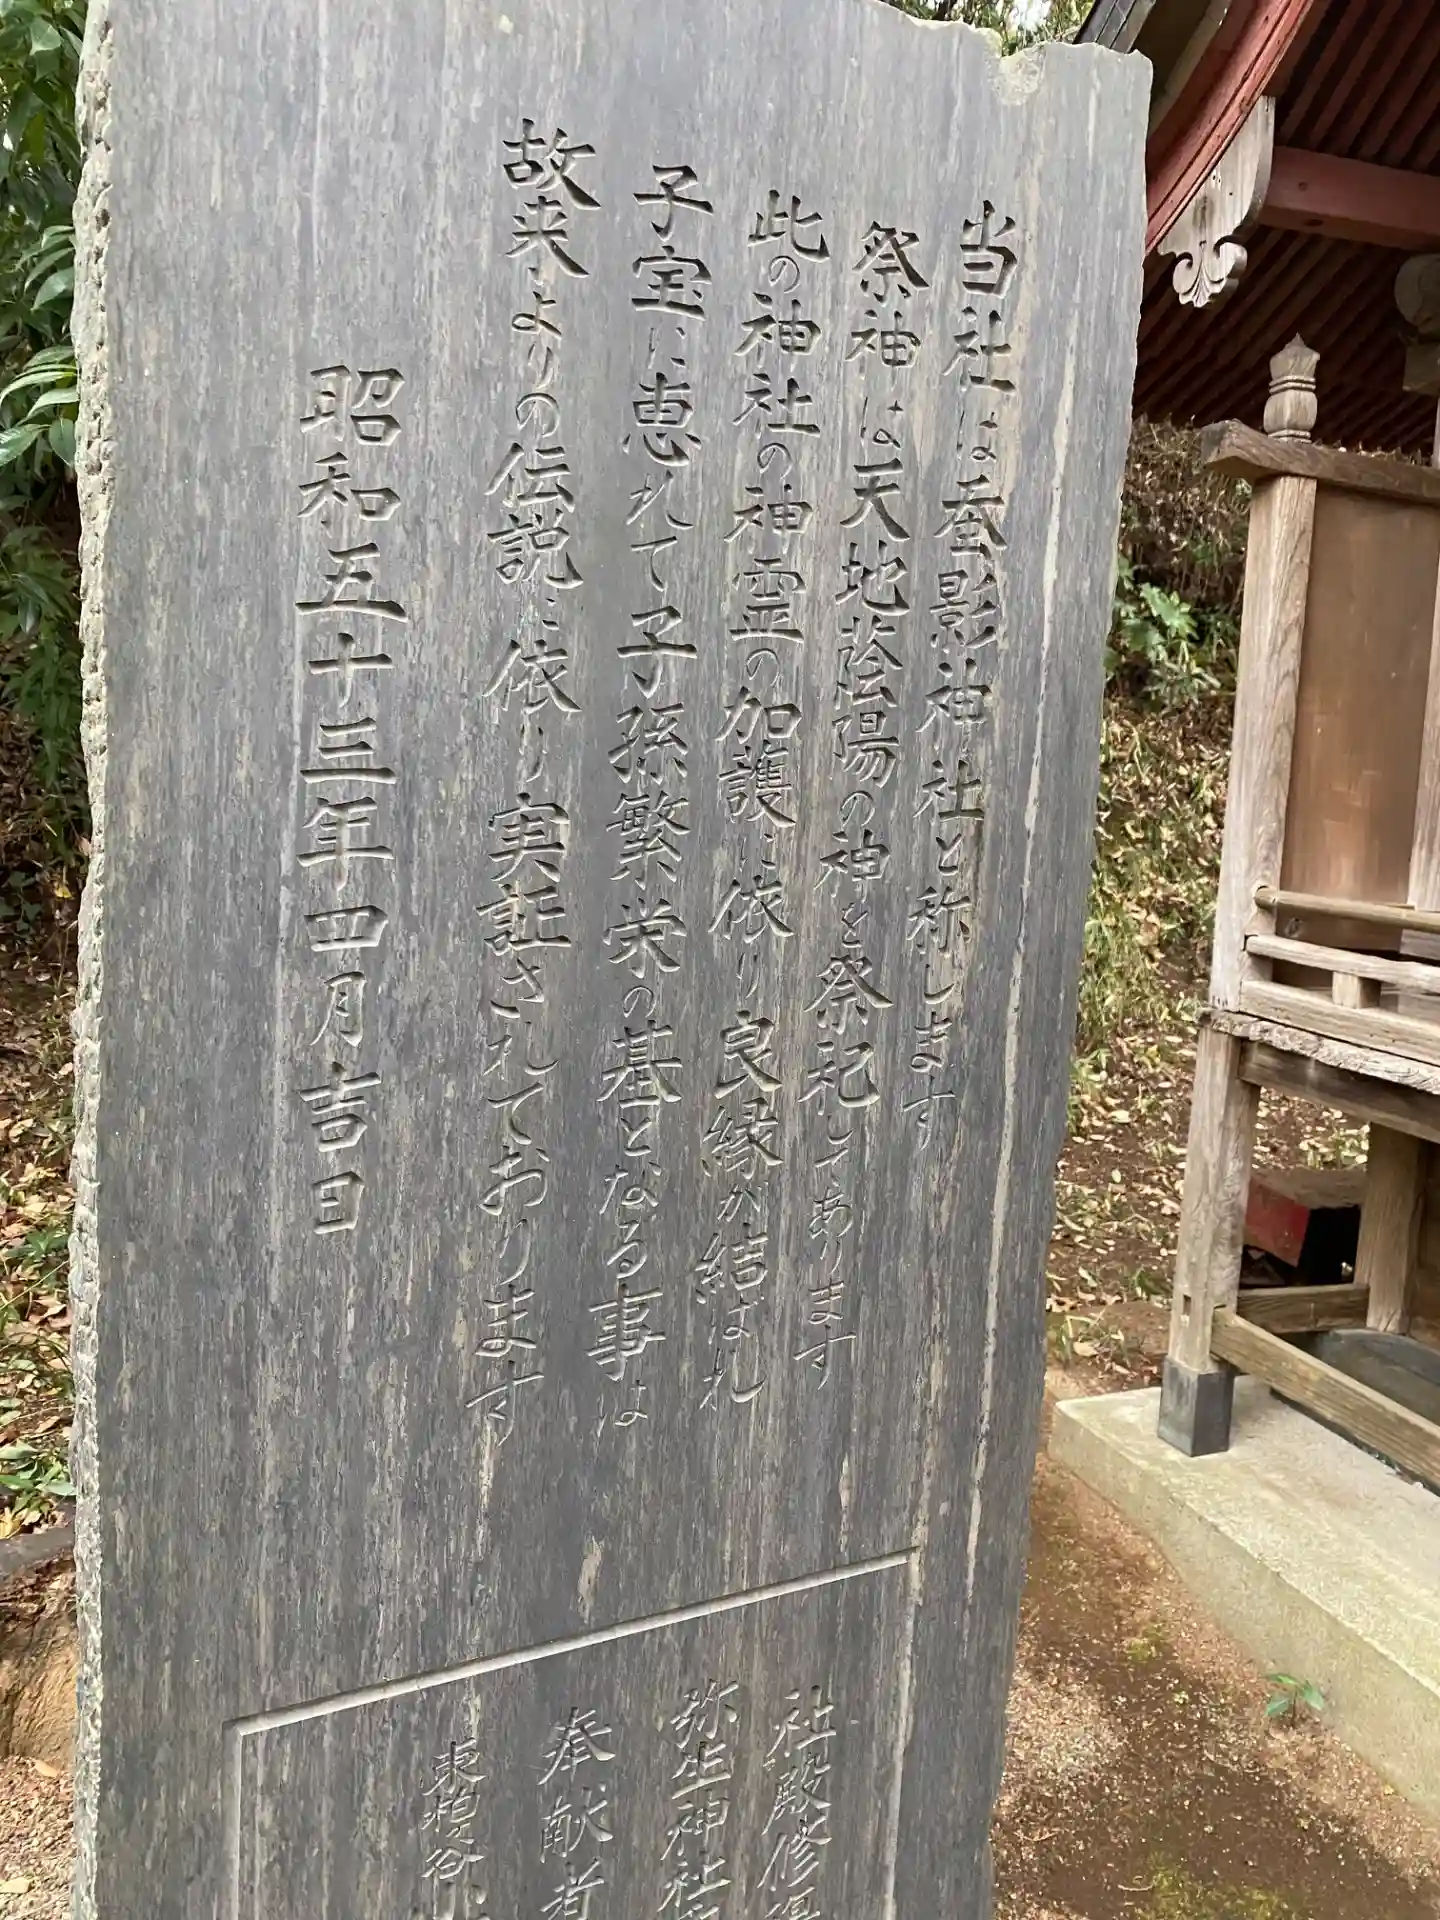 当社は蚕影神社と称します
祭神は天地蔭陽の神を祭祀してあります
此の神社の神霊の加護に依り良縁が結ばれ
子宝に恵れて子孫繁栄の基となる事は
故来よりの伝説に依り実証されております
昭和五十三年四月吉日
社殿修
弥生神社
奉献者
東柏ケ谷